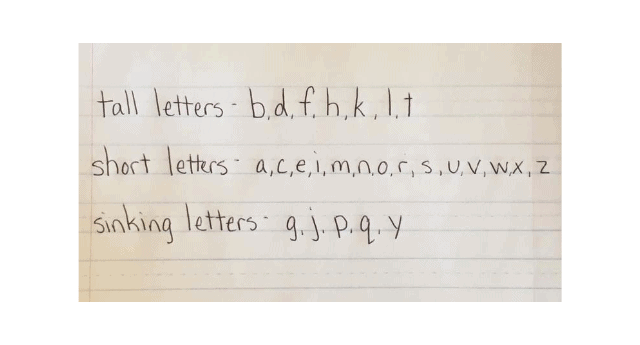 tall letters - b,d,f,h,k,l,t
short letters - a,c,e,i,m,n,o,r,s,u,v,w,x,z
sinking letters - g,j,p,q,y